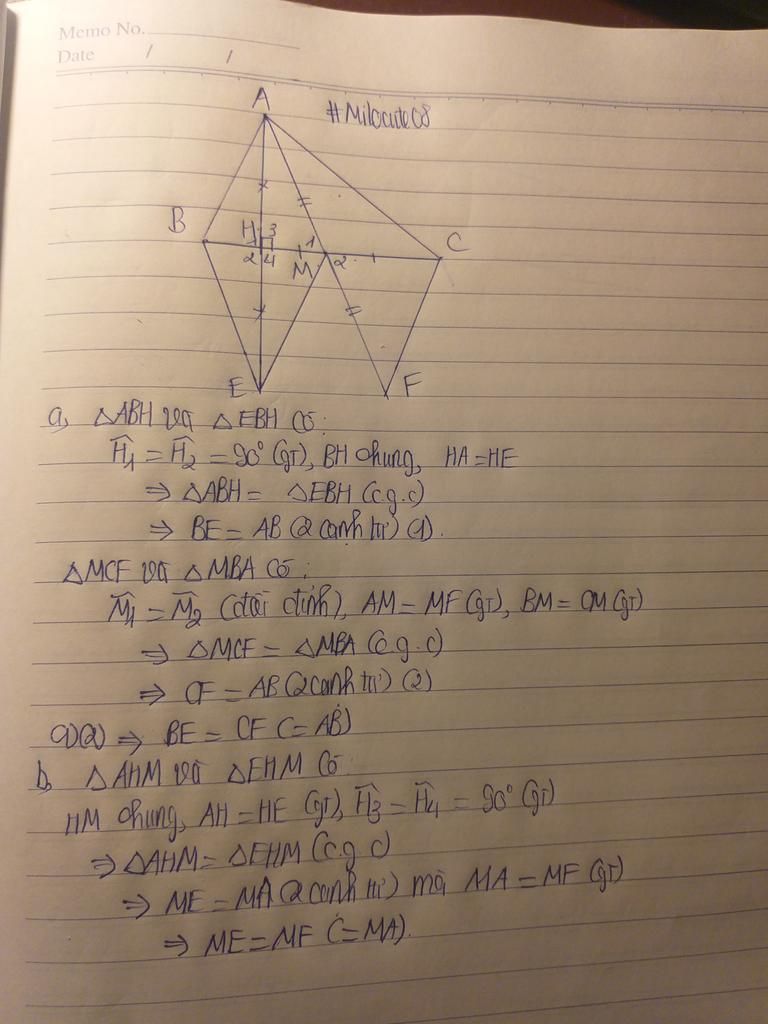 Memo No.
Date / /
A
#Milocute08
B
H 3
1
C
2 4
M
2
E
F
a, △ABH và △EBH có:
Ĥ1 = Ĥ2 = 90° (gt), BH chung, HA = HE
⇒ △ABH = △EBH (c.g.c)
⇒ BE = AB (2 cạnh tư) (1).
△MCF và △MBA có:
M̂1 = M̂2 (đối đỉnh), AM = MF (gt), BM = CM (gt)
⇒ △MCF = △MBA (c.g.c)
⇒ CF = AB (2 cạnh tư) (2)
(1)(2) ⇒ BE = CF (= AB)
b, △AHM và △EHM có:
HM chung, AH = HE (gt), Ĥ3 = Ĥ4 = 90° (gt)
⇒ △AHM = △EHM (c.g.c)
⇒ ME = MA (2 cạnh tư) mà MA = MF (gt)
⇒ ME = MF (= MA).